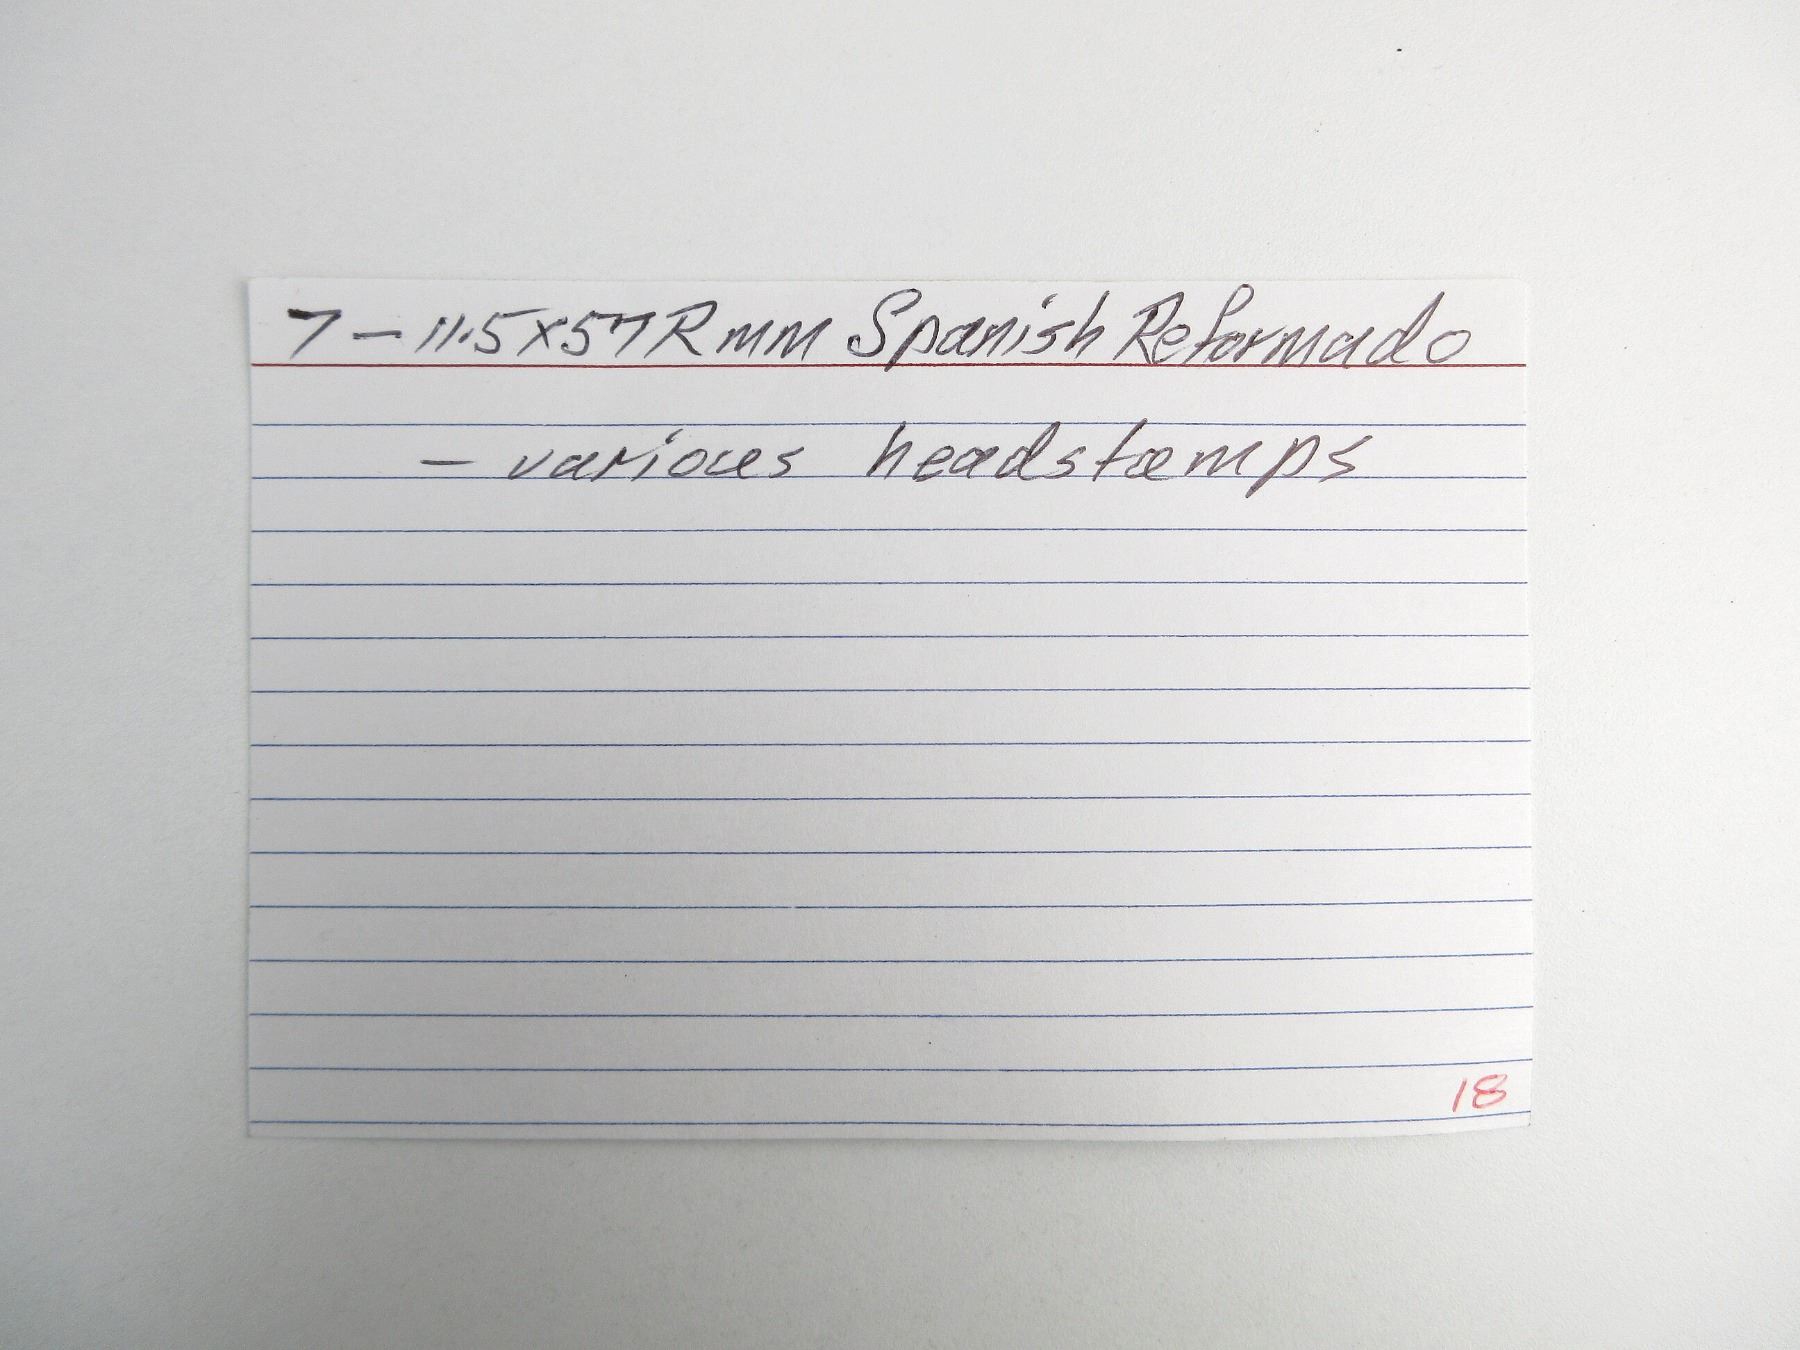 7 - 11.5x57R mm Spanish Reformado
- various headstamps
18